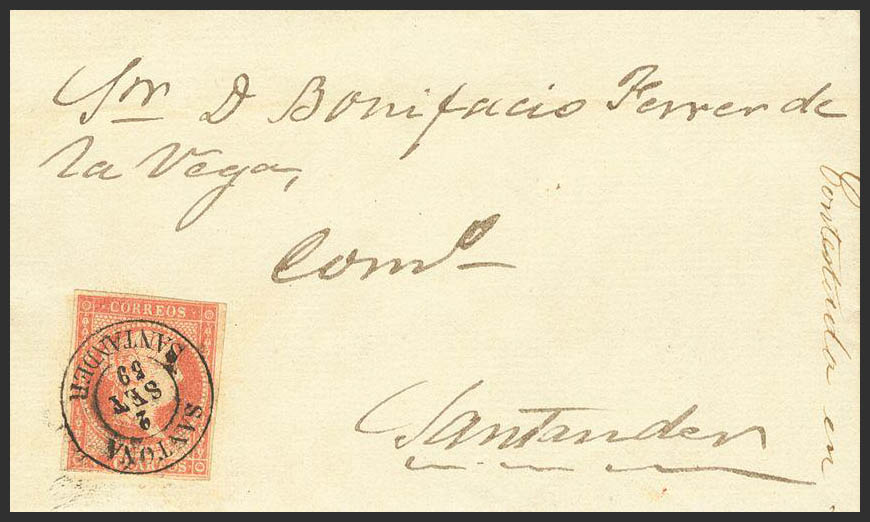 Sor D Bonifacio Ferrer de
la Vega,
Como
Santander
Contestada en
CORREOS
SANTOÑA
2
SET
59
SANTANDER
CUARTOS